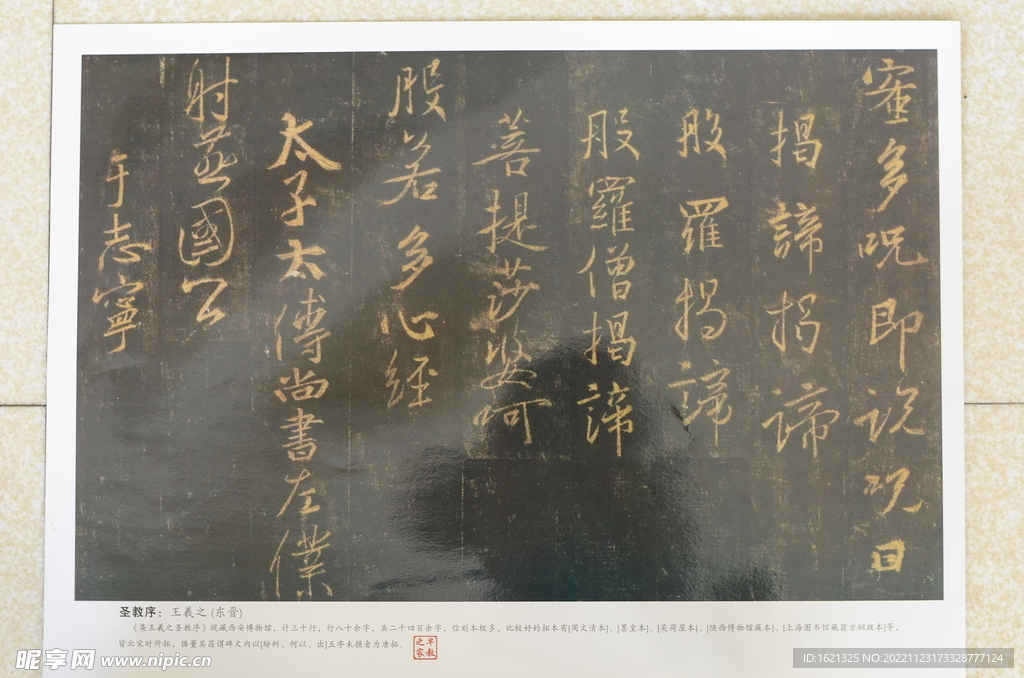 蜜多咒即说咒曰
揭諦揭諦
般羅揭諦
般羅僧揭諦
菩提莎婆呵
般若多心經
太子太傅尚書左僕
射燕國公
于志寧
圣教序：王羲之（东晋）
《集王羲之圣教序》现藏西安博物馆，计三十行，行八十余字，共二千四百余字，信刻本极多，比较好的拓本有[周文清本]、[墨皇本]、[吴荷屋本]、[陕西博物馆藏本]、[上海图书馆藏翦方纲跋本]等，
皆北宋时所拓，据董其昌谓碑文内以[纷纠、何以、出]五字未损者为唐拓。
早教之家
昵享网 www.nipic.cn
www.nipic.com
ID:1621325 NO:20221123173328777124